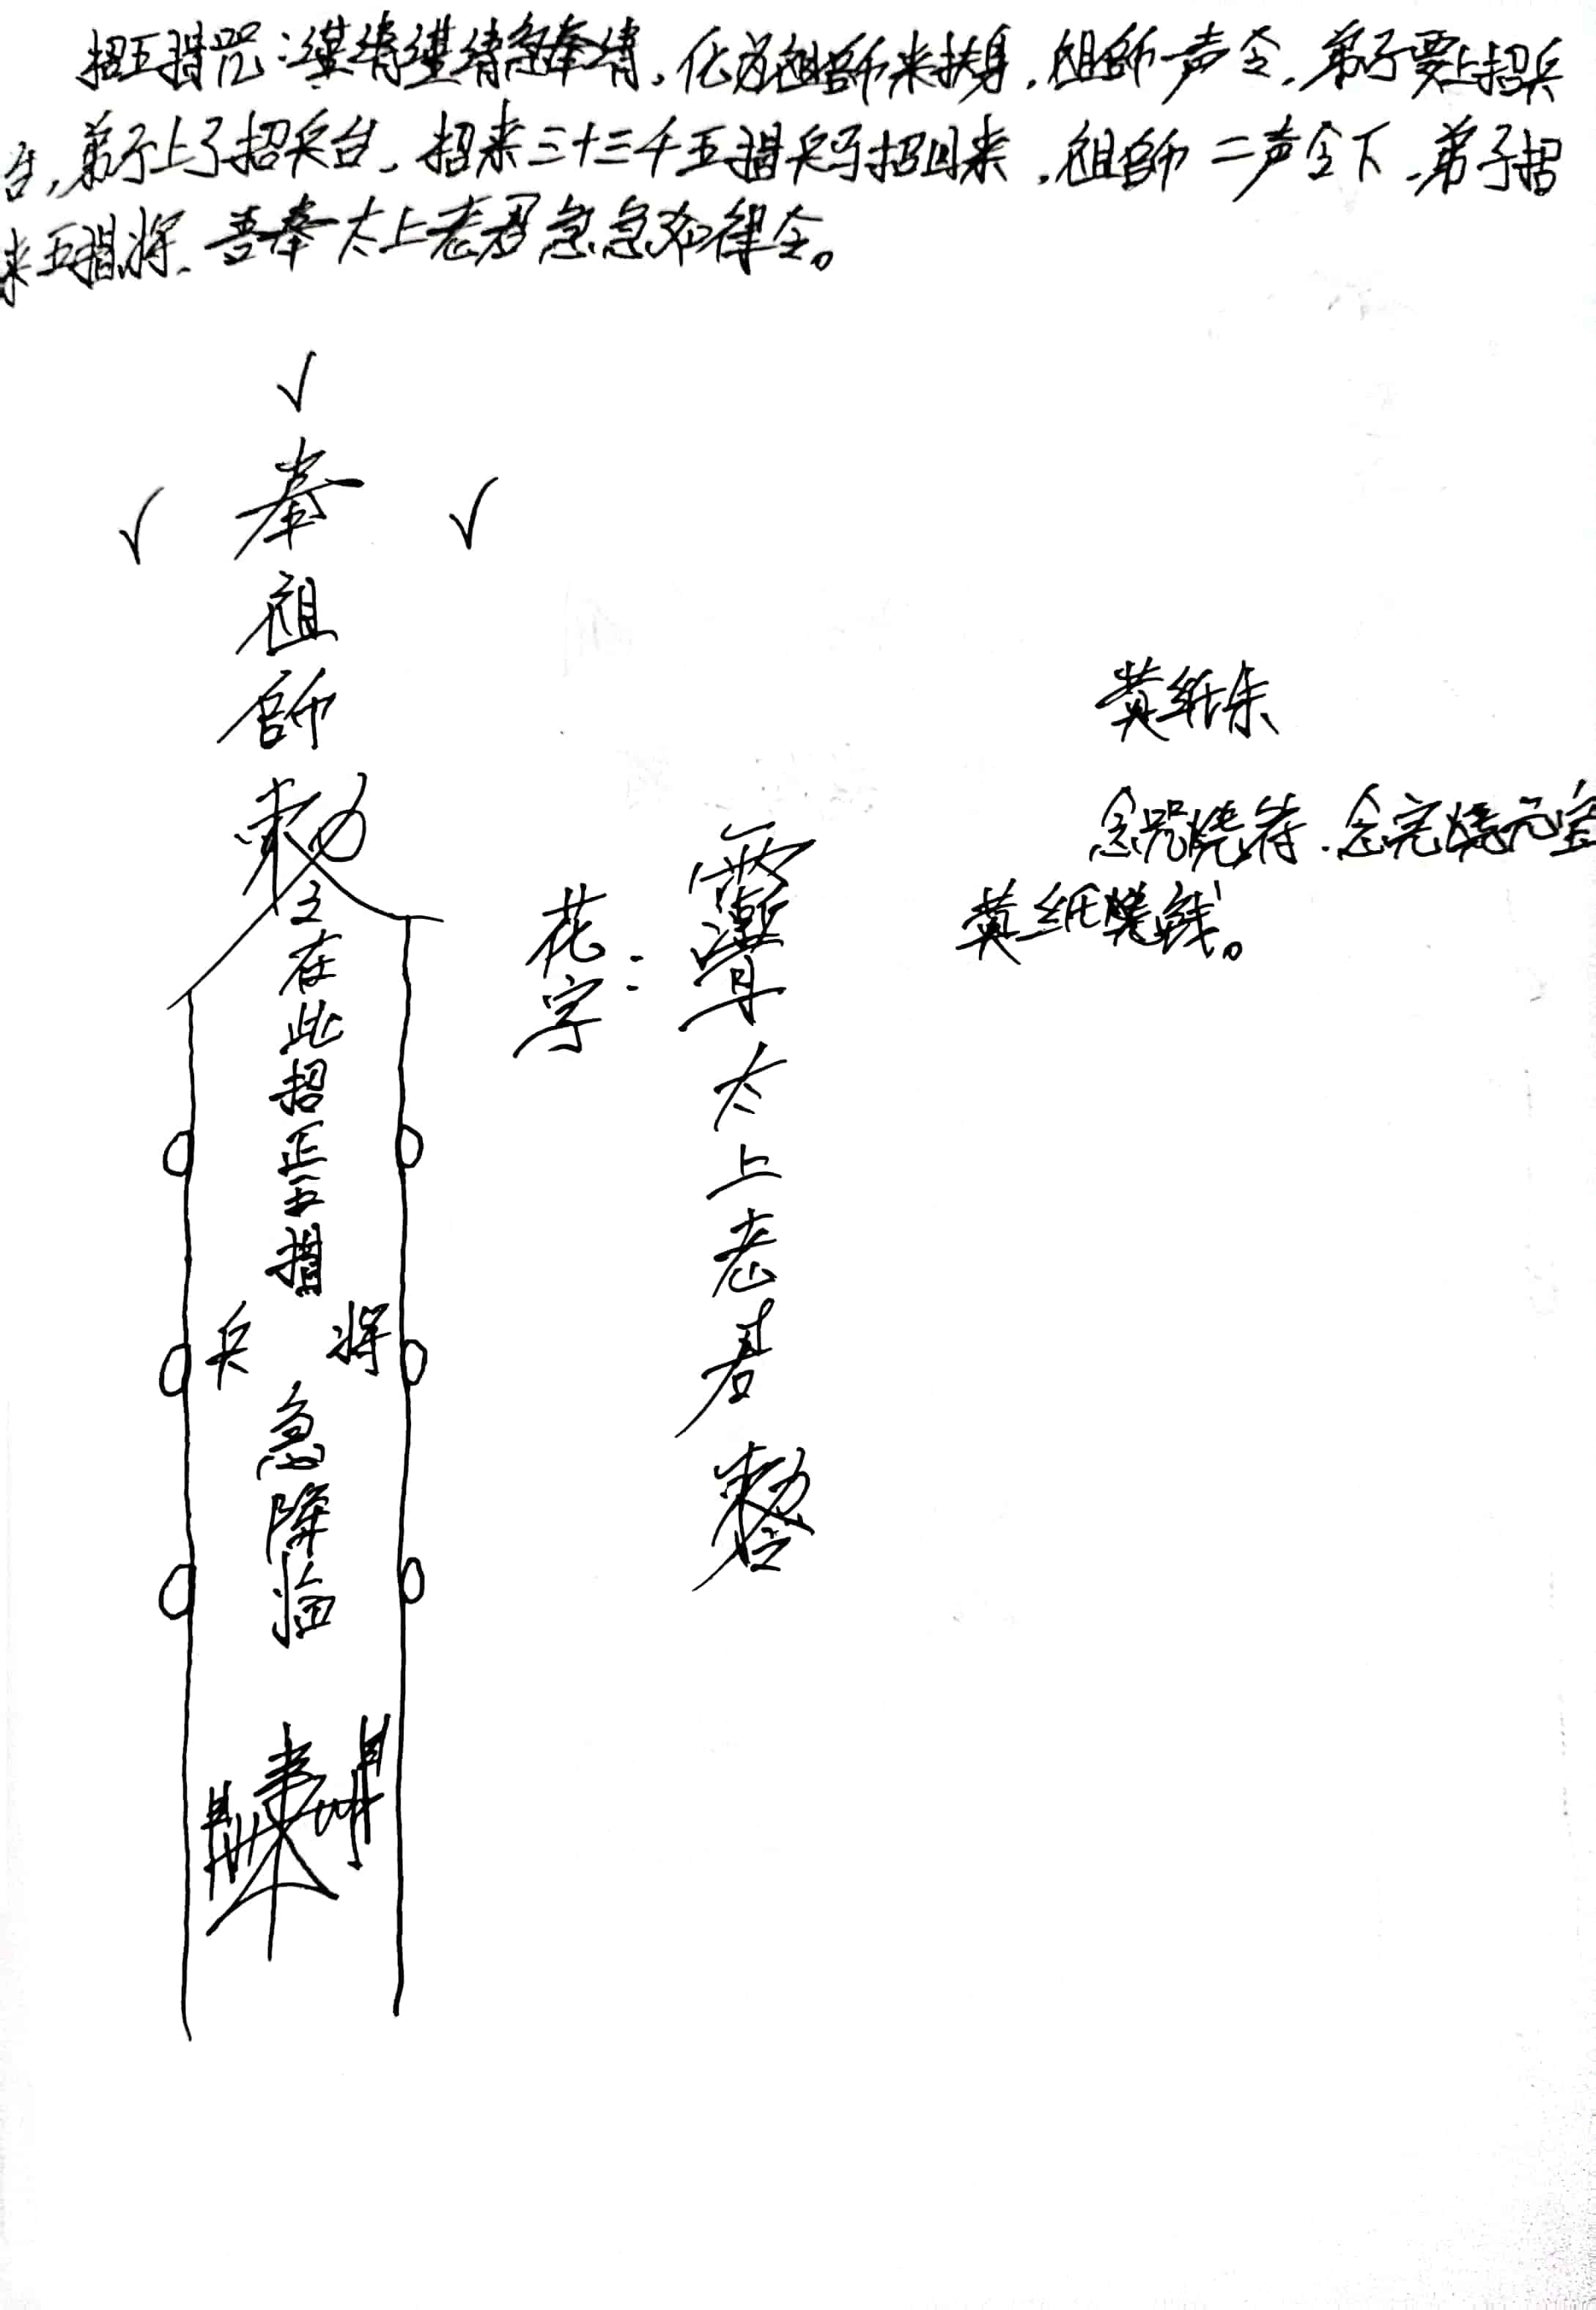 招五猖咒：
化为祖師来扶身，祖師一声令，弟子要上招兵
台，弟子上了招兵台，招来三十三千五猖兵马招回来，祖師二声令下，弟子招
来五猖将，吾奉太上老君急急如律令。
奉
祖
師
勅
立在此招正五猖
兵 将
急降临
花字：
太上老君
勅令
黄纸朱
念咒烧符．念完烧元宝
黄纸烧钱。